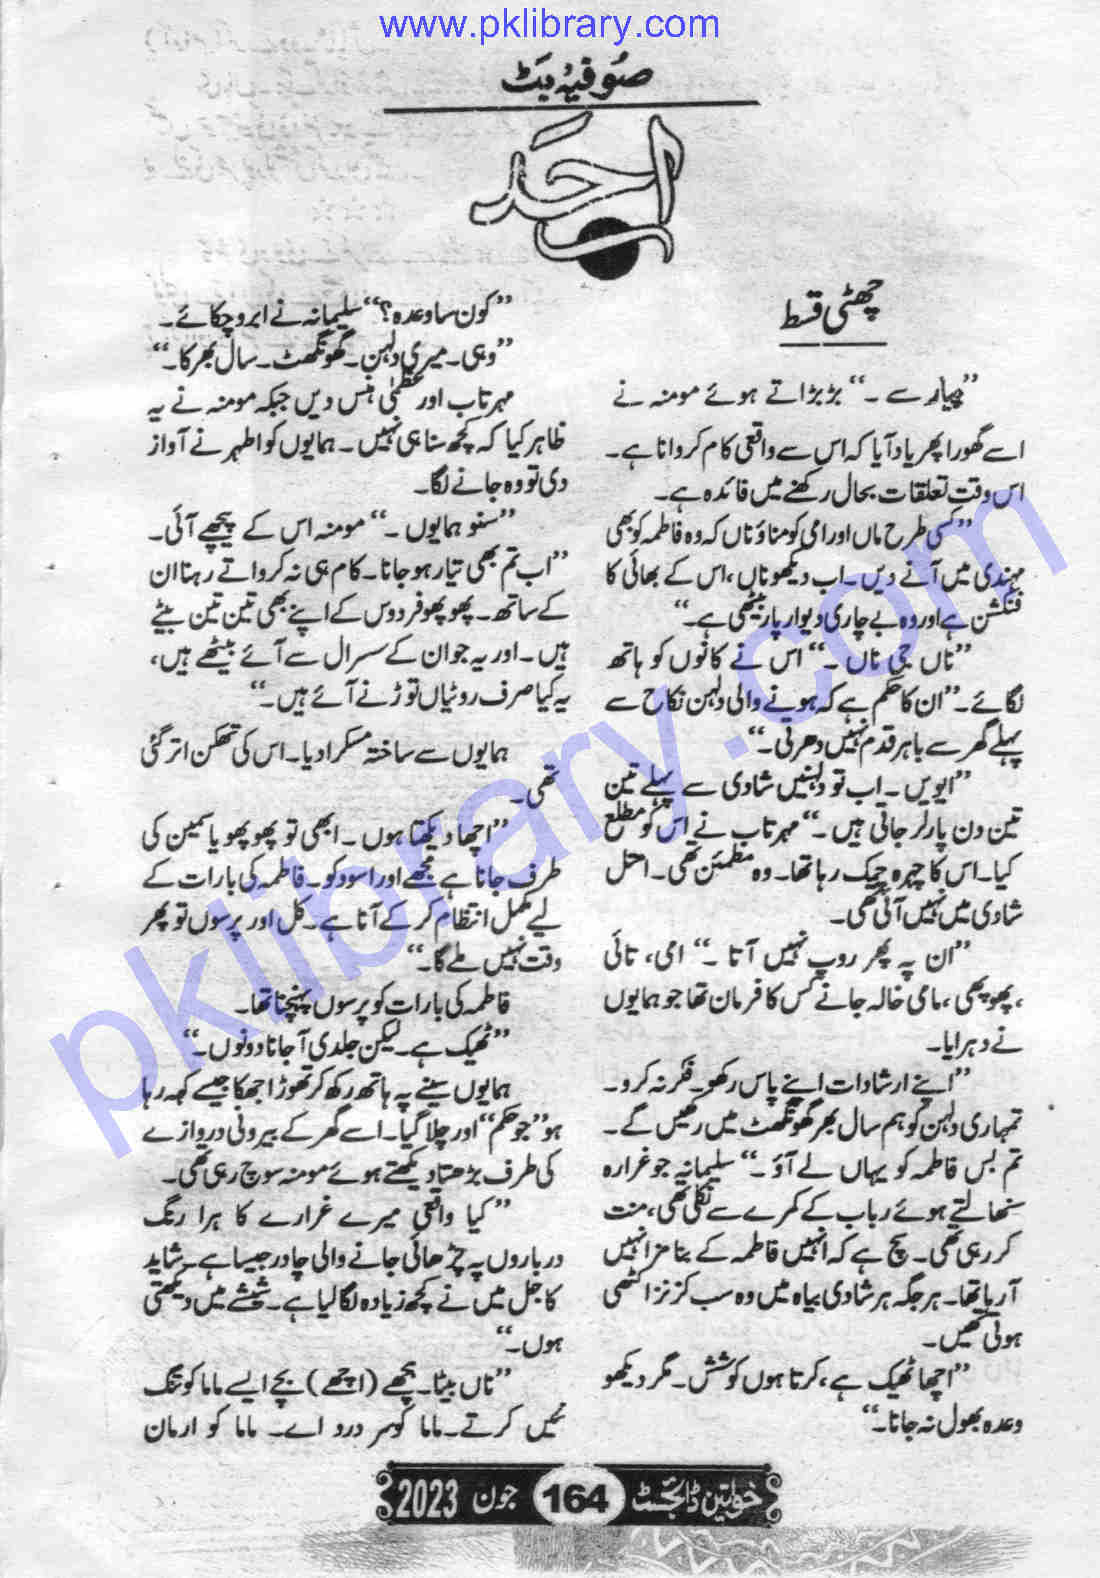 www.pklibrary.com
صوفیہ بٹ
احد
چھٹی قسط
”پیار سے ۔“ بڑبڑاتے ہوئے مومنہ نے
اسے گھورا پھر یاد آیا کہ اس سے واقعی کام کروانا ہے۔
اس وقت تعلقات بحال رکھنے میں فائدہ ہے۔
”کسی طرح ماں اور امی کو مناؤ ناں کہ وہ فاطمہ کو بھی
مہندی میں آنے دیں۔ اب دیکھو ناں، اس کے بھائی کا
فنکشن ہے اور وہ بے چاری دیوار پار بیٹھی ہے۔“
”ناں جی ناں ۔“ اس نے کانوں کو ہاتھ
لگائے۔ ”ان کا حکم ہے کہ ہونے والی دلہن نکاح سے
پہلے گھر سے باہر قدم نہیں دھرتی۔“
”ایویں۔ اب تو دلہنیں شادی سے پہلے تین
تین دن پارلر جاتی ہیں۔“ مہرتاب نے اس کو مطلع
کیا۔ اس کا چہرہ چمک رہا تھا۔ وہ مطمئن تھی۔ امثل
شادی میں نہیں آئی تھی۔
”ان پہ پھر روپ نہیں آتا ۔“ امی، تائی
، پھوپھی، مامی خالہ جانے کس کا فرمان تھا جو ہمایوں
نے دہرایا۔
”اپنے ارشادات اپنے پاس رکھو۔ فکر نہ کرو۔
تمہاری دلہن کو ہم سال بھر گھونگھٹ میں رکھیں گے۔
تم بس فاطمہ کو یہاں لے آؤ ۔“ سلیمانہ جو غرارہ
سنبھالتے ہوئے رباب کے کمرے سے نکلی تھی، منت
کر رہی تھی۔ سچ ہے کہ انہیں فاطمہ کے بنا مزا نہیں
آ رہا تھا۔ ہر جگہ ہر شادی بیاہ میں وہ سب کزنز اکٹھی
ہوتی تھیں۔
”اچھا ٹھیک ہے، کرتا ہوں کوشش۔ مگر دیکھو
وعدہ بھول نہ جانا۔“
”کون سا وعدہ؟“ سلیمانہ نے ابرو چکائے۔
”وہی۔ میری دلہن۔ گھونگھٹ۔ سال بھر کا۔“
مہرتاب اور عظمٰی ہنس دیں جبکہ مومنہ نے یہ
ظاہر کیا کہ کچھ سنا ہی نہیں۔ ہمایوں کو اطہر نے آواز
دی تو وہ جانے لگا۔
”سنو ہمایوں ۔“ مومنہ اس کے پیچھے آئی۔
”اب تم بھی تیار ہو جانا۔ کام ہی نہ کرواتے رہنا ان
کے ساتھ۔ پھوپھو فردوس کے اپنے بھی تین تین بیٹے
ہیں۔ اور یہ جو ان کے سسرال سے آئے بیٹھے ہیں،
یہ کیا صرف روٹیاں توڑنے آئے ہیں۔“
ہمایوں بے ساختہ مسکرا دیا۔ اس کی تھکن اتر گئی
تھی۔
”اچھا دیکھتا ہوں۔ ابھی تو پھوپھو یاسمین کی
طرف جانا ہے مجھے اور اسود کو۔ فاطمہ کی بارات کے
لیے مکمل انتظام کر کے آنا ہے۔ کل اور پرسوں تو پھر
وقت نہیں ملے گا۔“
فاطمہ کی بارات کو پرسوں پہنچنا تھا۔
”ٹھیک ہے۔ لیکن جلدی آ جانا دونوں۔“
ہمایوں سینے پہ ہاتھ رکھ کر تھوڑا جھکا جیسے کہہ رہا
ہو ”جو حکم“ اور چلا گیا۔ اسے گھر کے بیرونی دروازے
کی طرف بڑھتا دیکھتے ہوئے مومنہ سوچ رہی تھی۔
”کیا واقعی میرے غرارے کا ہرا رنگ
درباروں پہ چڑھائی جانے والی چادر جیسا ہے۔ شاید
کاجل میں نے کچھ زیادہ لگا لیا ہے۔ شیشے میں دیکھتی
ہوں۔“
”ناں بیٹا۔ بچھے (اچھے) بچے ایسے ماما کو تنگ
نہیں کرتے۔ ماما کو سر درد اے۔ ماما کو ارمان
خواتین ڈائجسٹ 164 جون 2023
pklibrary.com